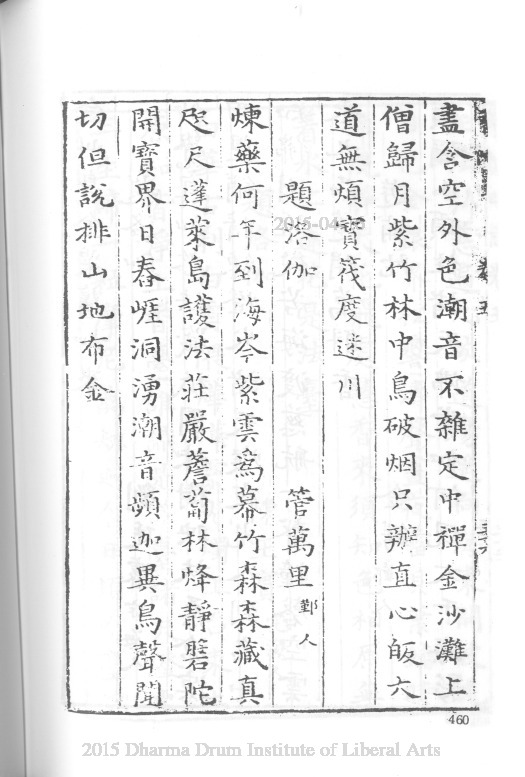 盡含空外色潮音不雜定中禪金沙灘上
僧歸月紫竹林中鳥破烟只辦直心皈六
道無煩寶筏度迷川
題洛伽 管萬里 鄞人
煉藥何年到海岑紫雲爲幕竹森森藏真
咫尺蓬萊島護法莊嚴薝蔔林烽靜磐陀
開寶界日舂崕洞湧潮音頻迦異鳥聲聞
切但說排山地布金
卷五
460
2015 Dharma Drum Institute of Liberal Arts